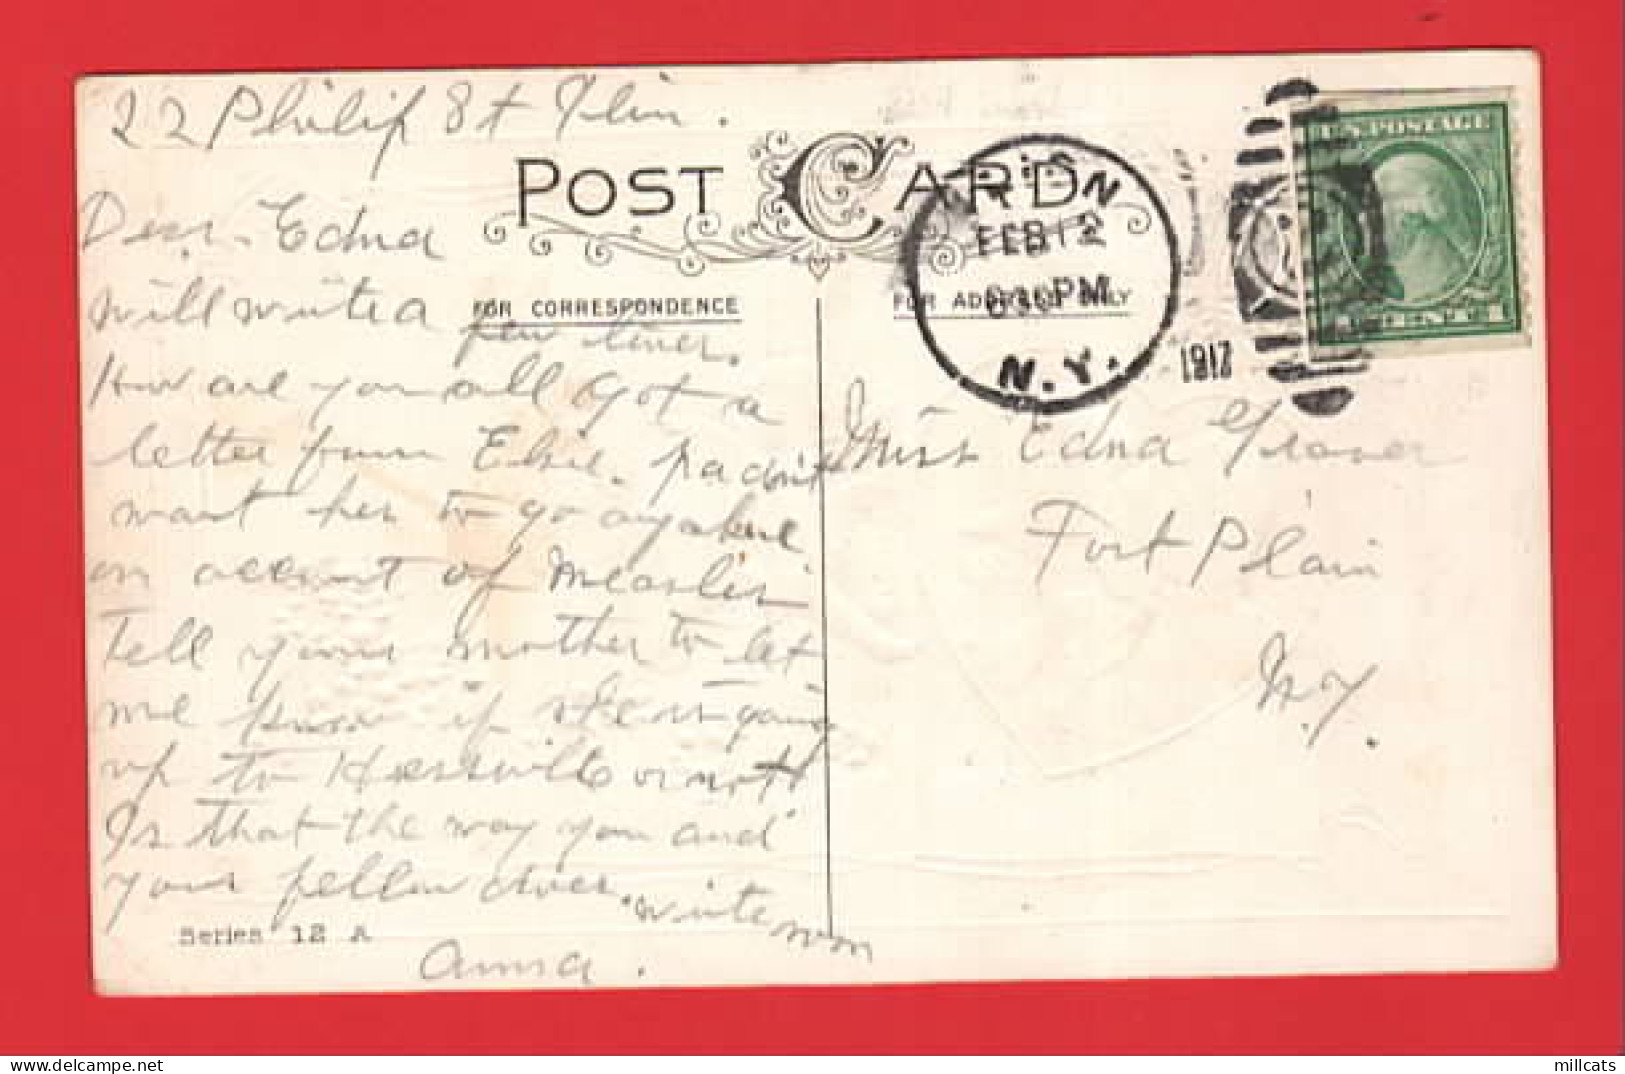 22 Philip St Ilion.
POST CARD
Dear Edna
FOR CORRESPONDENCE
will write a few lines.
How are you all Got a
letter from Elsie. pa dont
want her to go
on account of Measles
Tell your mother to let
me know if she is going
up to Hessville or not
Is that the way you and
your fellow does. write soon
Anna.
Series 12 A
FOR ADDRESS ONLY
N
FEB 12
630PM
N.Y.
1917
U.S. POSTAGE
Miss Edna Graves
Fort Plain
N.Y.
millcats